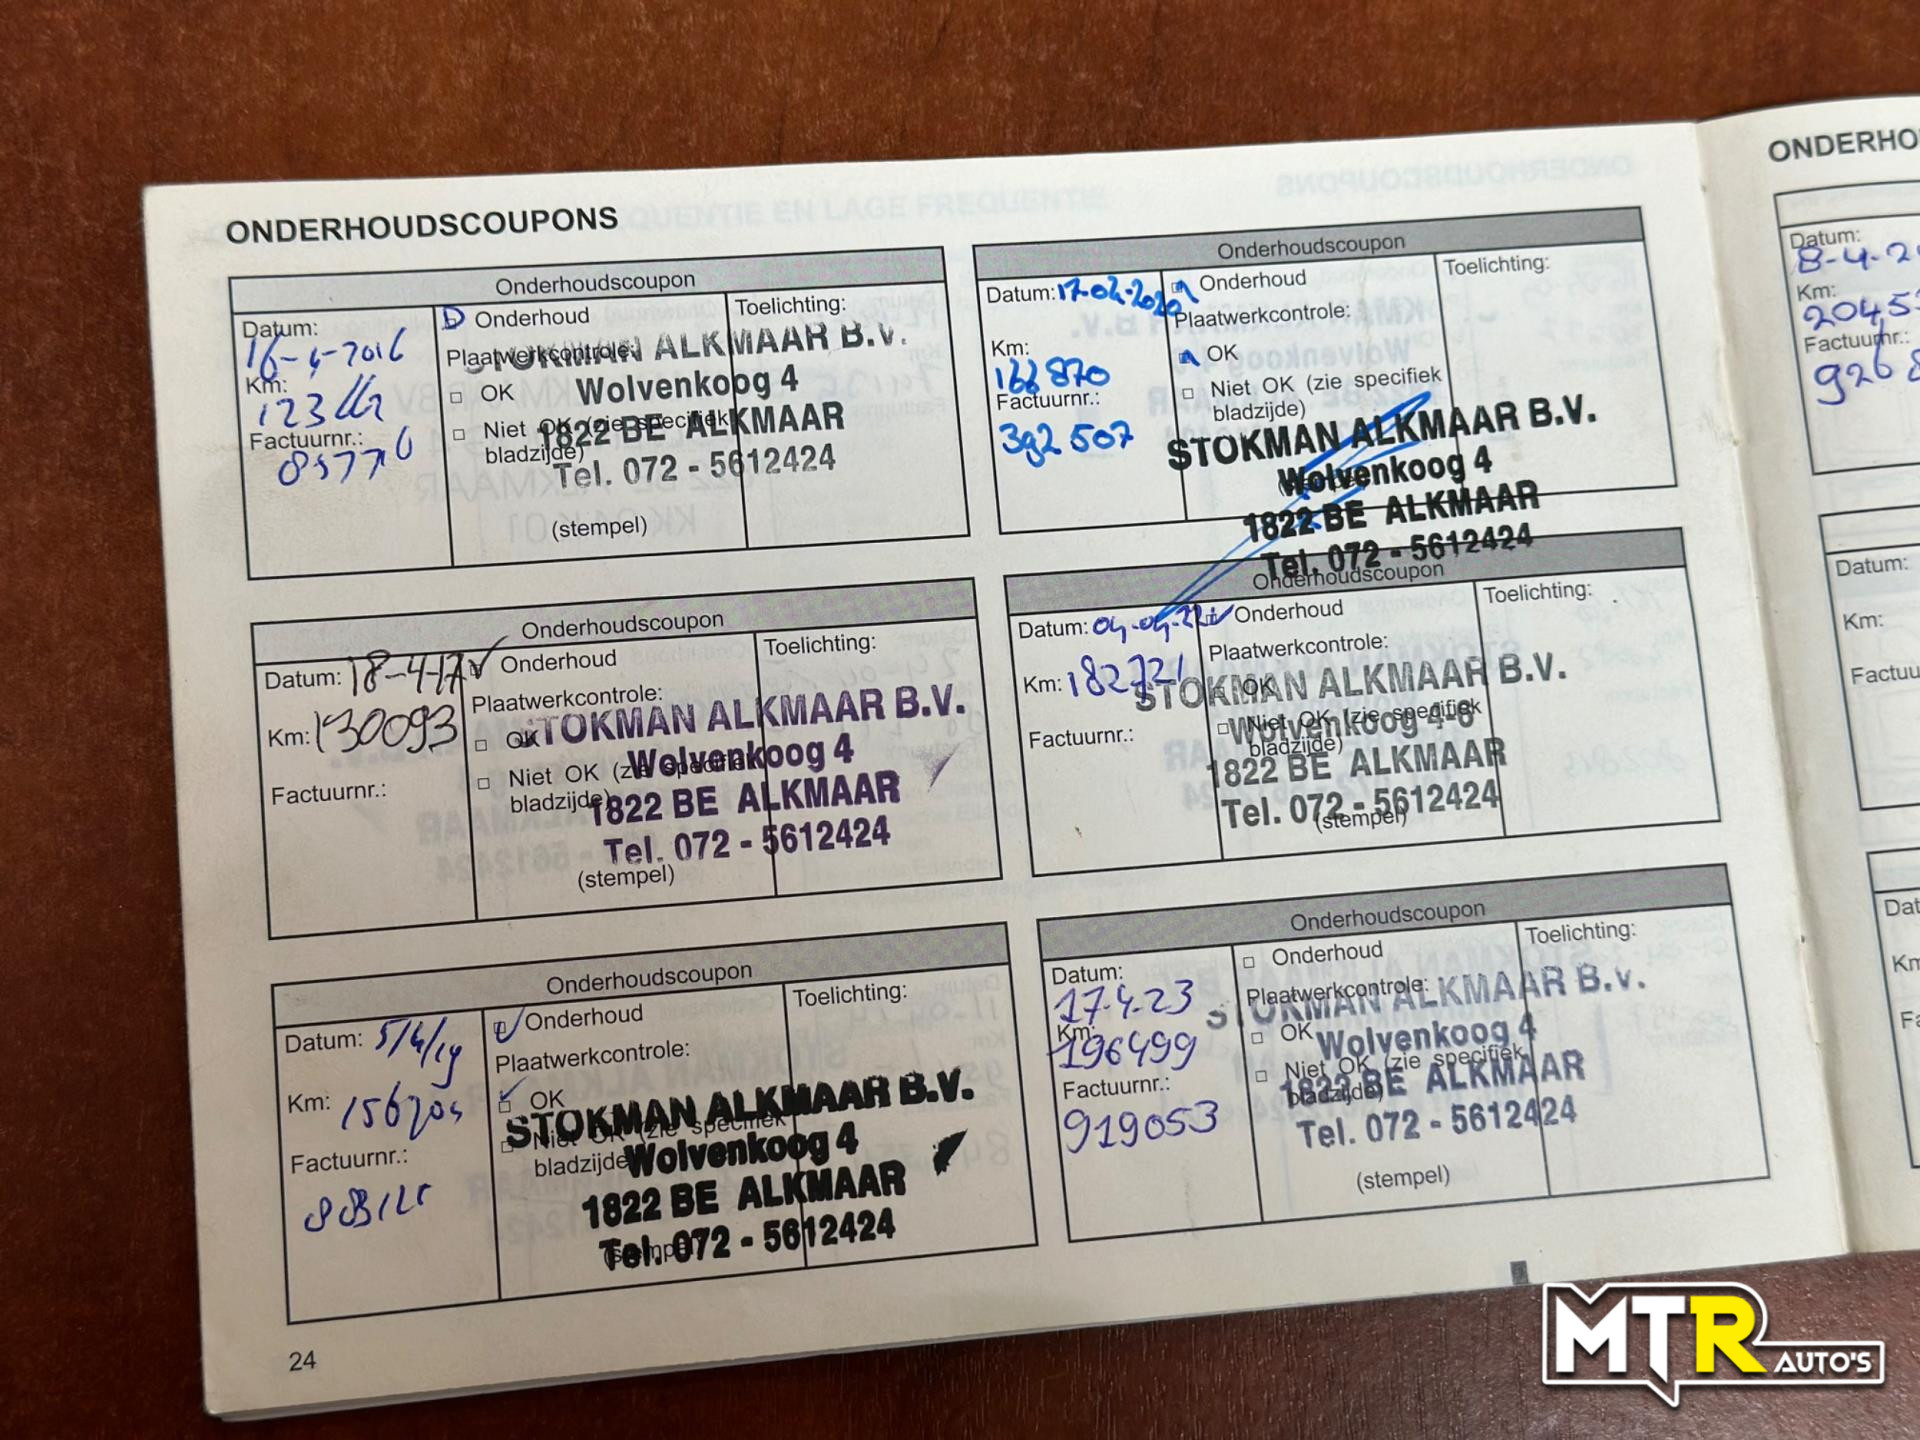 ONDERHOUDSCOUPONS
Onderhoudscoupon
Datum:
16-4-2016
Km:
Factuurnr.:
Onderhoud
Plaatwerkcontrole:
OK
Niet OK (zie specifiek
bladzijde)
(stempel)
Toelichting:
STOKMAN ALKMAAR B.V.
Wolvenkoog 4
1822 BE ALKMAAR
Tel. 072 - 5612424
Onderhoudscoupon
Datum: 18-4-17
Km: 130093
Factuurnr.:
Onderhoud
Plaatwerkcontrole:
OK
Niet OK (zie specifiek
bladzijde)
(stempel)
Toelichting:
STOKMAN ALKMAAR B.V.
Wolvenkoog 4
1822 BE ALKMAAR
Tel. 072 - 5612424
Onderhoudscoupon
Datum: 5/4/19
Km:
Factuurnr.:
Onderhoud
Plaatwerkcontrole:
OK
Niet OK (zie specifiek
bladzijde)
(stempel)
Toelichting:
STOKMAN ALKMAAR B.V.
Wolvenkoog 4
1822 BE ALKMAAR
Tel. 072 - 5612424
24
Onderhoudscoupon
Datum: 17-04-2020
Km:
166870
Factuurnr.:
392507
Onderhoud
Plaatwerkcontrole:
OK
Niet OK (zie specifiek
bladzijde)
Toelichting:
STOKMAN ALKMAAR B.V.
Wolvenkoog 4
1822 BE ALKMAAR
Tel. 072 - 5612424
Onderhoudscoupon
Datum: 04-04-22
Km: 182721
Factuurnr.:
Onderhoud
Plaatwerkcontrole:
OK
Niet OK (zie specifiek
bladzijde)
(stempel)
Toelichting:
STOKMAN ALKMAAR B.V.
Wolvenkoog 4-6
1822 BE ALKMAAR
Tel. 072 - 5612424
Onderhoudscoupon
Datum:
17.4.23
Km:
196499
Factuurnr.:
919053
Onderhoud
Plaatwerkcontrole:
OK
Niet OK (zie specifiek
bladzijde)
(stempel)
Toelichting:
STOKMAN ALKMAAR B.V.
Wolvenkoog 4
1822 BE ALKMAAR
Tel. 072 - 5612424
ONDERHO
Datum:
8-4-2
Km:
2045
Factuurnr.:
926
Datum:
Km:
Factuu
Dat
Km
Fa
MTR AUTO'S